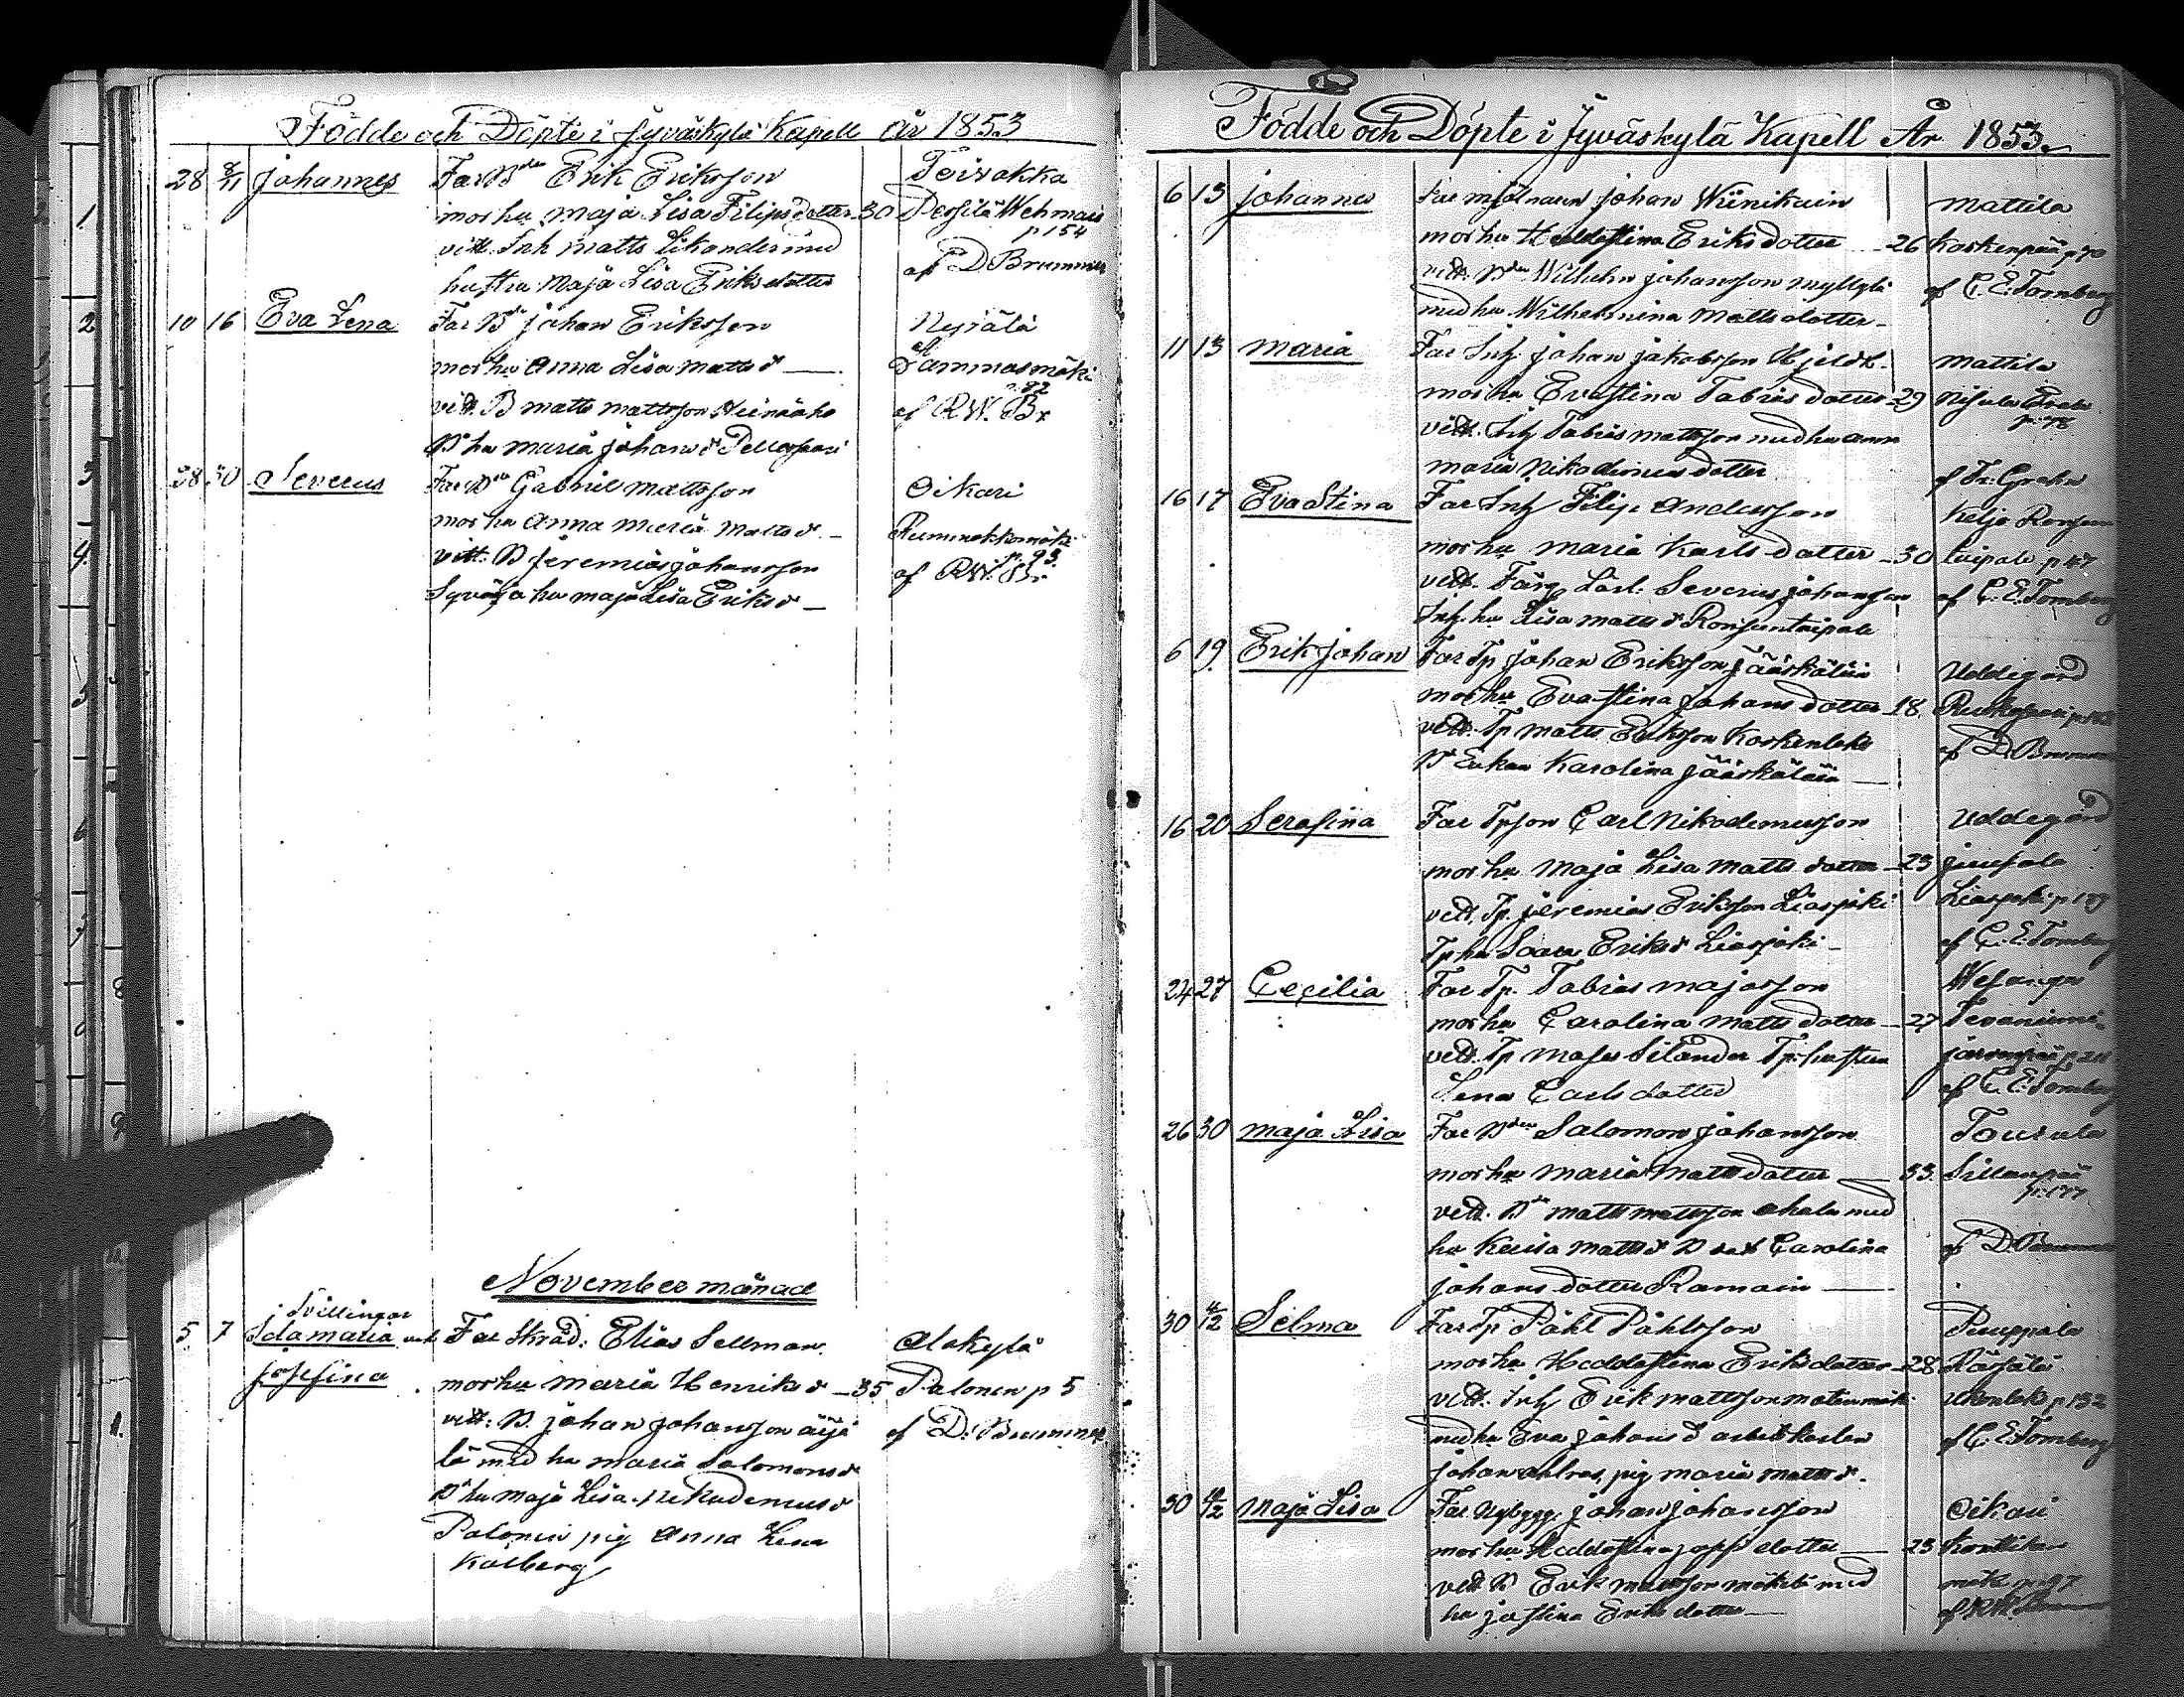 Födde och Döpte i Jyväskylä Kapell år 1853
28 8/11 Johannes Far Bdn Erik Eriksson Toivakka
mor hu Maja Lisa Filips dotter 30 Wehmais
vitt. Inh Matts med p 154
hustru Maja Lisa Eriks dotter af D Brummer
10 16 Eva Lena Far Bdn Johan Eriksson Nyrölä
mor hu Anna Lisa Matts d — Sammasmäki
vitt. B Matts Mattsson Heinäaho p. 82
B hu Maria Johans d af RW. Br
28 30 Severus Far Bdn Gabriel Mattsson Oikari
mor hu Anna Maria Matts d. —
vitt. B Jeremias Johansson p. 93.
hu Maja Lisa Eriks d — af RW. Br.
November månad
Tvillingar
5 7 Ida Maria och Far Skräd: Elias Sellman
Josefina mor hu Maria Henriks d — 35 Palonen p 5
vitt: B. Johan Johansson Äijä af D: Brummer
lä med hu Maria Salomons d
B hu Maja Lisa Nikodemus d
Palonen pig Anna Lena
Kolberg
Födde och Döpte i Jyväskylä Kapell År 1853.
6 13 Johannes Far mjölnaren Johan Wiinikain Mattila
mor hu Heddastina Eriks dotter — 26 Koskenpää p 70
vitt. Bdn Wilhelm Johansson Myllylä af C. E. Tornberg
med hu Wilhelmina Matts dotter —
11 13 Maria Far Inh. Johan Jakobsson Hjeldt. Mattila
mor hu Evastina Tobias dotter 29 Nisula
vitt. Inh Tobias Mattsson med hu Anna p. 78
Maria Nikodemus dotter af Fr. Grahn
16 17 Eva Stina Far Inh Filip Andersson Keljo Ronsun
mor hu Maria Karls dotter — 30 taipale p 47
vitt. Färg. Lärl: Severus Johansson af C. E. Tornberg
Inh. hu Lisa Matts d Ronsuntaipale
6 19. Erik Johan Far Tp Johan Eriksson Jääskäläin Uddegård
mor hu Evastina Johans dotter 18.
vitt. Tp Matts Eriksson Koskenleht af D. Brummer
B Enkan Karolina Jääskäläin —
16 20 Serafina Far Tpson Carl Nikodemusson Uddegård
mor hu Maja Lisa Matts dotter — 23 Juusola
vitt. Tp. Jeremias Eriksson Liasjoki
Tp hu Saara Eriks d Liasjoki — af C. E. Tornberg
24 27 Cecilia Far Tp. Tobias Majasson Wesanga
mor hu Carolina Matts dotter — 27
vitt. Tp Moses Silander Tp. hustru
Lena Carls dotter af C. E. Tornberg
26 30 Maja Lisa Far Bdn Salomon Johansson Tourula
mor hu Maria Matts dotter 33. Sillanpää
vitt. Bdn Matts Mattsson Ahola med p. 177
hu Kaisa Matts d B dot Carolina af D. Brummer
Johans dotter Ramain —
30 4/12 Selma Far Tp Påhl Påhlsson Puuppola
mor hu Heddastina Eriks dotter 28
vitt. Inh Erik Mattsson p 132
med hu Eva Johans d arbetskarlen af C. E. Tornberg
Johan Ahlros, pig Maria Matts d.
30 4/12 Maja Lisa Far Nybygg. Johan Johansson Oikari
mor hu Heddastina dotter — 23
vitt B Erik Mattsson Mäkelä med
hu Justina Eriks dotter —